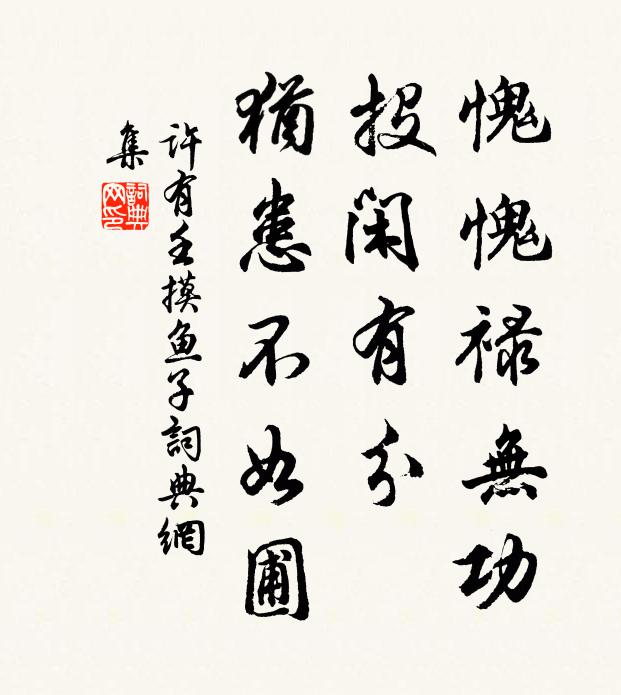 愧愧禄無功
投閑有分
猶患不如圃
許有壬摸魚子詞典網
集
詞典
网印